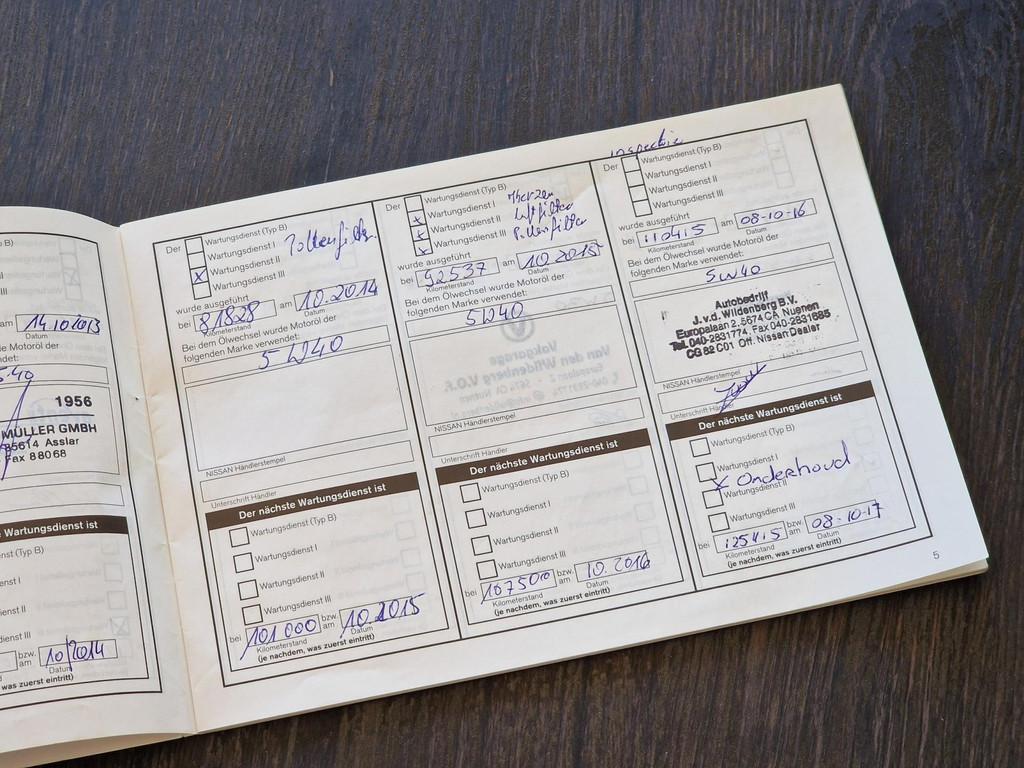 B)
am 14.10.2013
Datum
Motoröl der
ndet:
5-40
1956
MÜLLER GMBH
35614 Asslar
Fax 88068
e Wartungsdienst ist
(Typ B)
st I
st II
nst III
bzw. am 10/2014
Datum
was zuerst eintritt)
Der
Wartungsdienst (Typ B)
Wartungsdienst I
Pollenfilter
x Wartungsdienst II
Wartungsdienst III
wurde ausgeführt
bei 81828 am 10.2014
Kilometerstand Datum
Bei dem Ölwechsel wurde Motoröl der
folgenden Marke verwendet:
5W40
NISSAN Händlerstempel
Unterschrift Händler
Der nächste Wartungsdienst ist
Wartungsdienst (Typ B)
Wartungsdienst I
Wartungsdienst II
Wartungsdienst III
bei 101 000 bzw. am 10.2015
Kilometerstand Datum
(je nachdem, was zuerst eintritt)
Der
Wartungsdienst (Typ B)
Wartungsdienst I
x Wartungsdienst II
x Wartungsdienst III
Luftfilter
Pollenfilter
wurde ausgeführt
bei 92537 am 10.2015
Kilometerstand Datum
Bei dem Ölwechsel wurde Motoröl der
folgenden Marke verwendet:
5W40
NISSAN Händlerstempel
Der nächste Wartungsdienst ist
Wartungsdienst (Typ B)
Wartungsdienst I
Wartungsdienst II
Wartungsdienst III
bei 107500 bzw. am 10.2016
Kilometerstand Datum
(je nachdem, was zuerst eintritt)
inspectie
Der
Wartungsdienst (Typ B)
Wartungsdienst I
Wartungsdienst II
Wartungsdienst III
wurde ausgeführt
bei 110415 am 08-10-16
Kilometerstand Datum
Bei dem Ölwechsel wurde Motoröl der
folgenden Marke verwendet:
5W40
Autobedrijf
J.v.d. Wildenberg B.V.
Europalaan 2, 5674 CA Nuenen
Tel. 040-2831774, Fax 040-2831885
CG 82 C01 Off. Nissan Dealer
NISSAN Händlerstempel
Unterschrift Händler
Der nächste Wartungsdienst ist
Wartungsdienst (Typ B)
Wartungsdienst I
x Onderhoud
Wartungsdienst II
Wartungsdienst III
bei 125415 bzw. am 08-10-17
Kilometerstand Datum
(je nachdem, was zuerst eintritt)
5